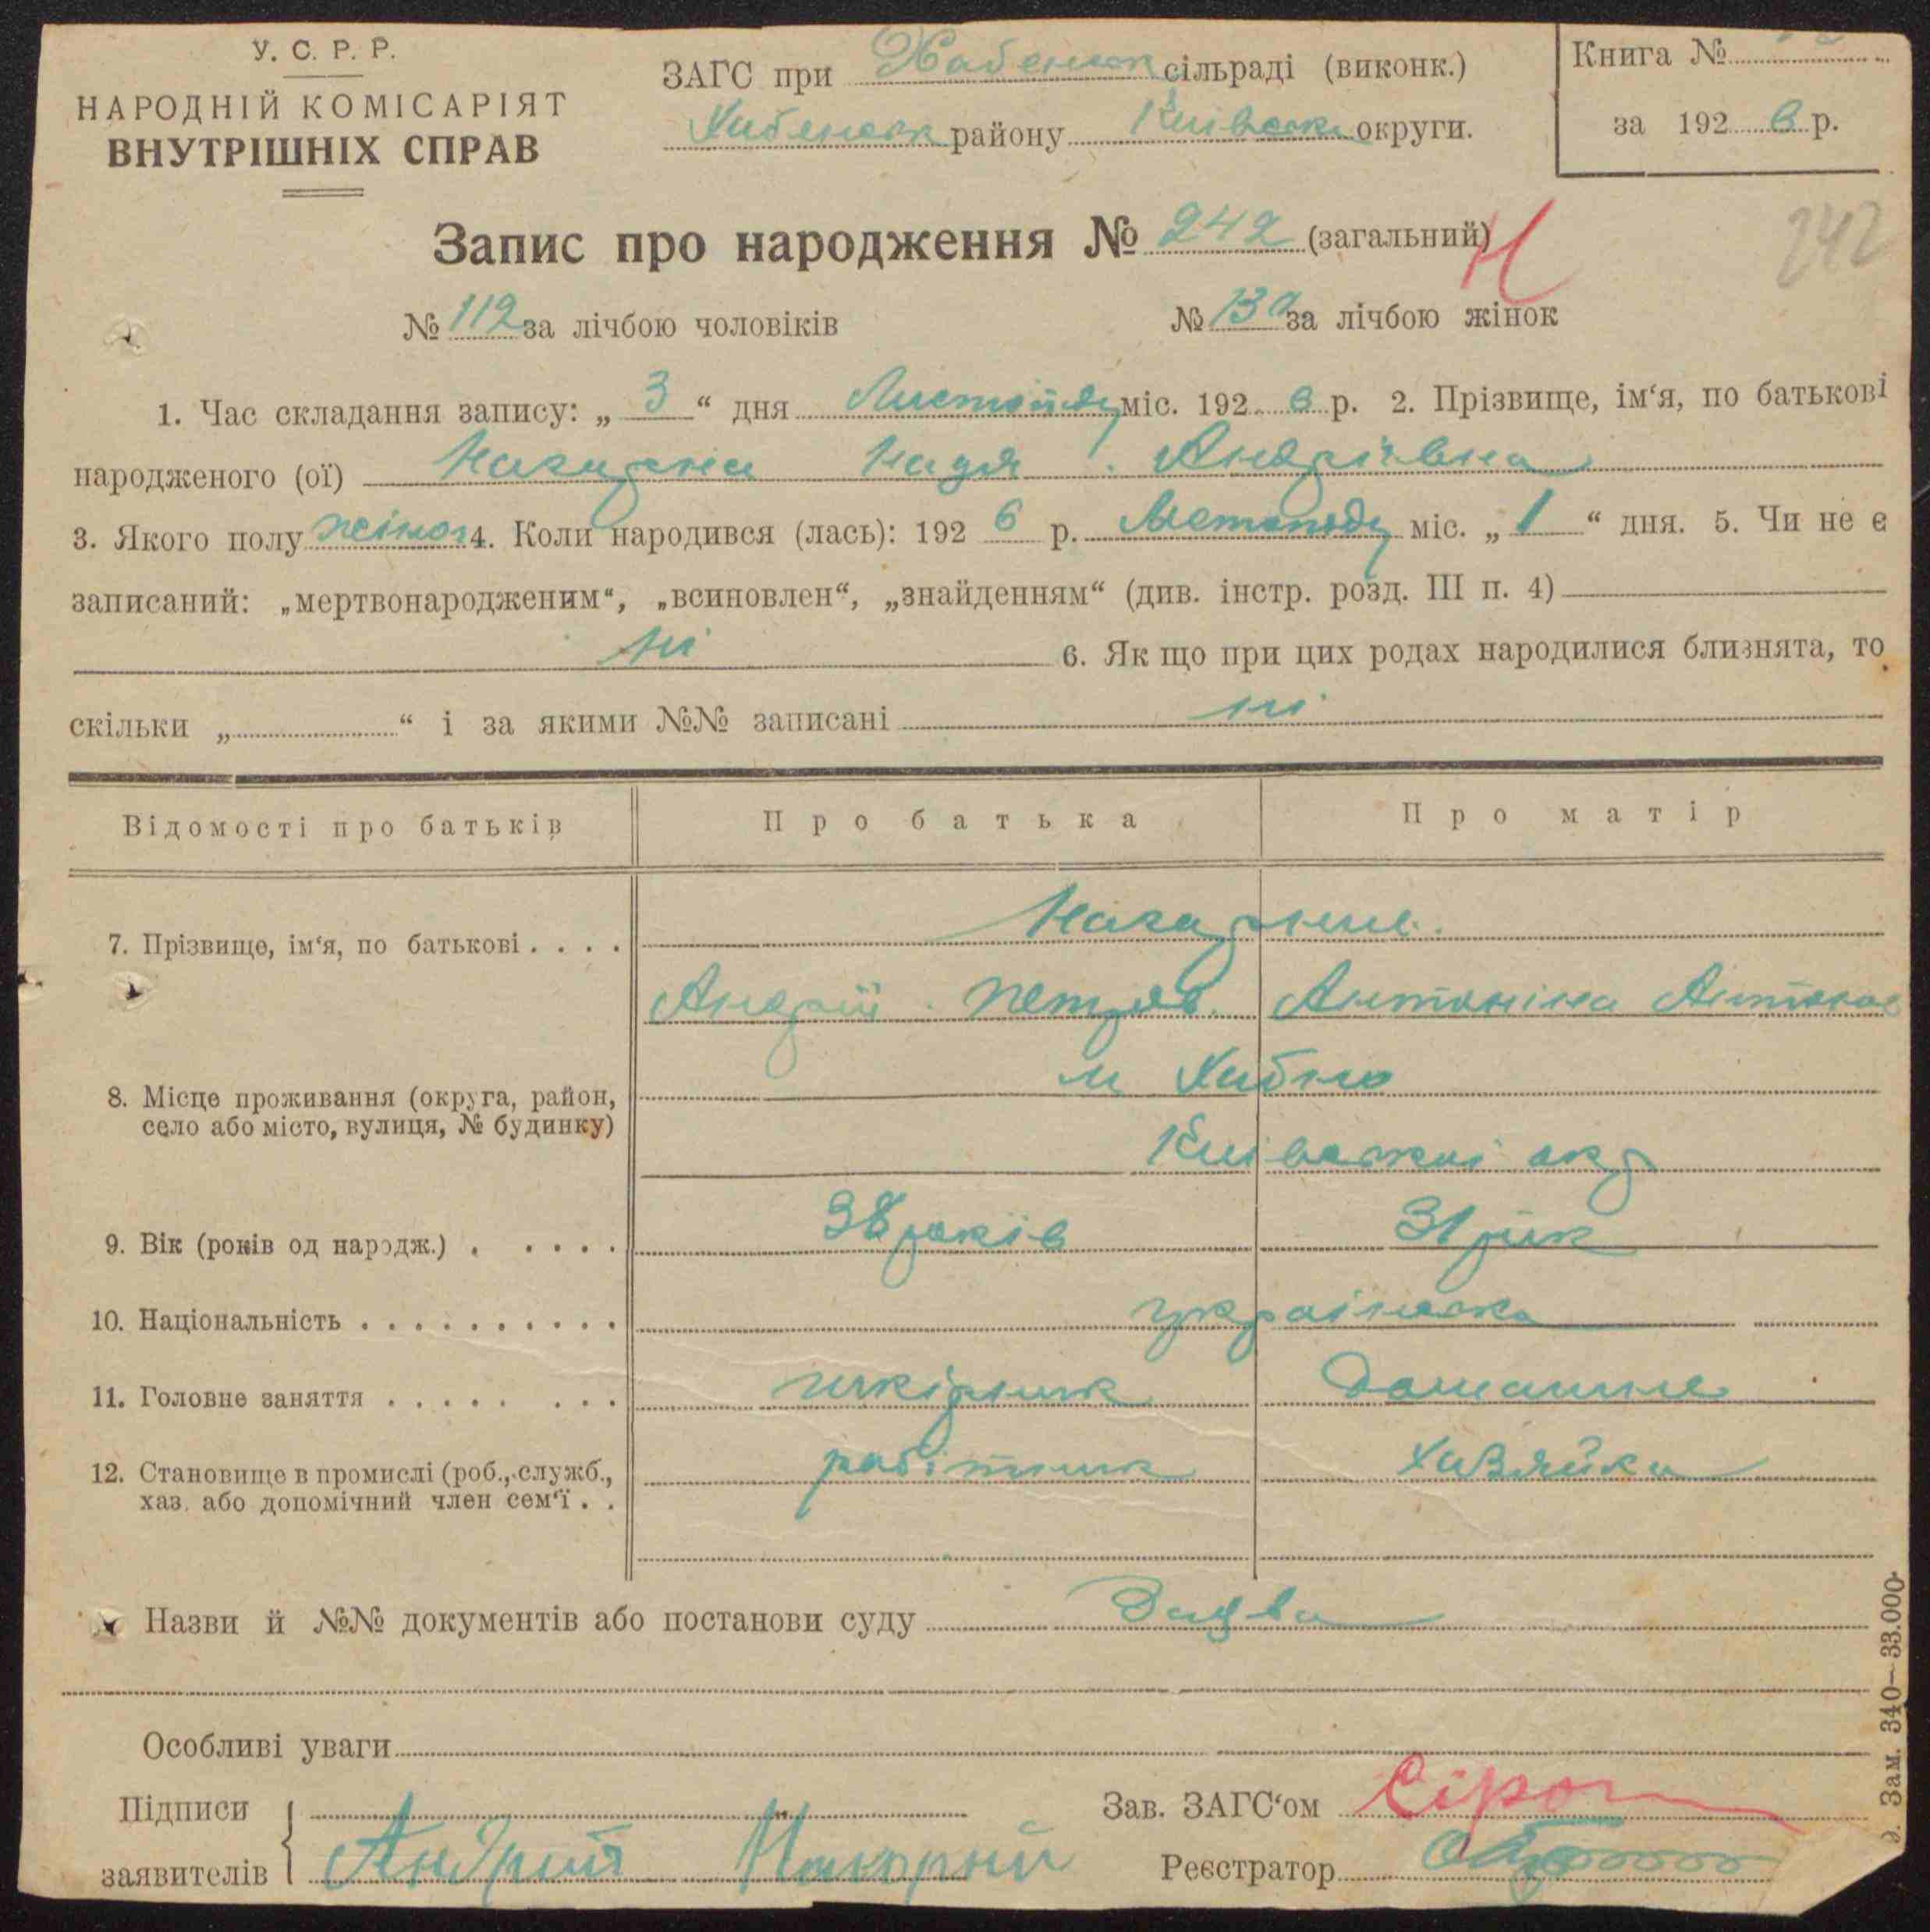 У. С. Р. Р.
НАРОДНІЙ КОМІСАРІЯТ
ВНУТРІШНІХ СПРАВ
ЗАГС при Хабенськ сільраді (виконк.)
Хабенськ району Київськ округи.
Книга №
за 1926 р.
Запис про народження № 242 (загальний)
Н
242
№ 112 за лічбою чоловіків № 130 за лічбою жінок
1. Час складання запису: „ 3 “ дня Листопаду міс. 1926 р. 2. Прізвище, ім‘я, по батькові
народженого (ої) Надя Андріївна
3. Якого полу жіноч 4. Коли народився (лась): 1926 р. Листопаду міс. „ 1 “ дня. 5. Чи не є
записаний: „мертвонародженим“, „всиновлен“, „знайденням“ (див. інстр. розд. III п. 4)
ні 6. Як що при цих родах народилися близнята, то
скільки „ “ і за якими №№ записані ні
Відомості про батьків Про батька Про матір
7. Прізвище, ім‘я, по батькові . . . .
Андрій Петров. Антоніна Антонов
8. Місце проживання (округа, район, м Хабно
село або місто, вулиця, № будинку)
Київської окр
9. Вік (років од народж.) . . . . . 38 років 31 рік
10. Національність . . . . . . . . . . українська
11. Головне заняття . . . . . . . . шкірник домашне
12. Становище в промислі (роб., служб., робітник хазяйка
хаз. або допомічний член сем‘ї . .
Назви й №№ документів або постанови суду Заява
Особливі уваги
Підписи Зав. ЗАГС‘ом
заявителів Андрий Реєстратор
д. Зам. 340—33.000.